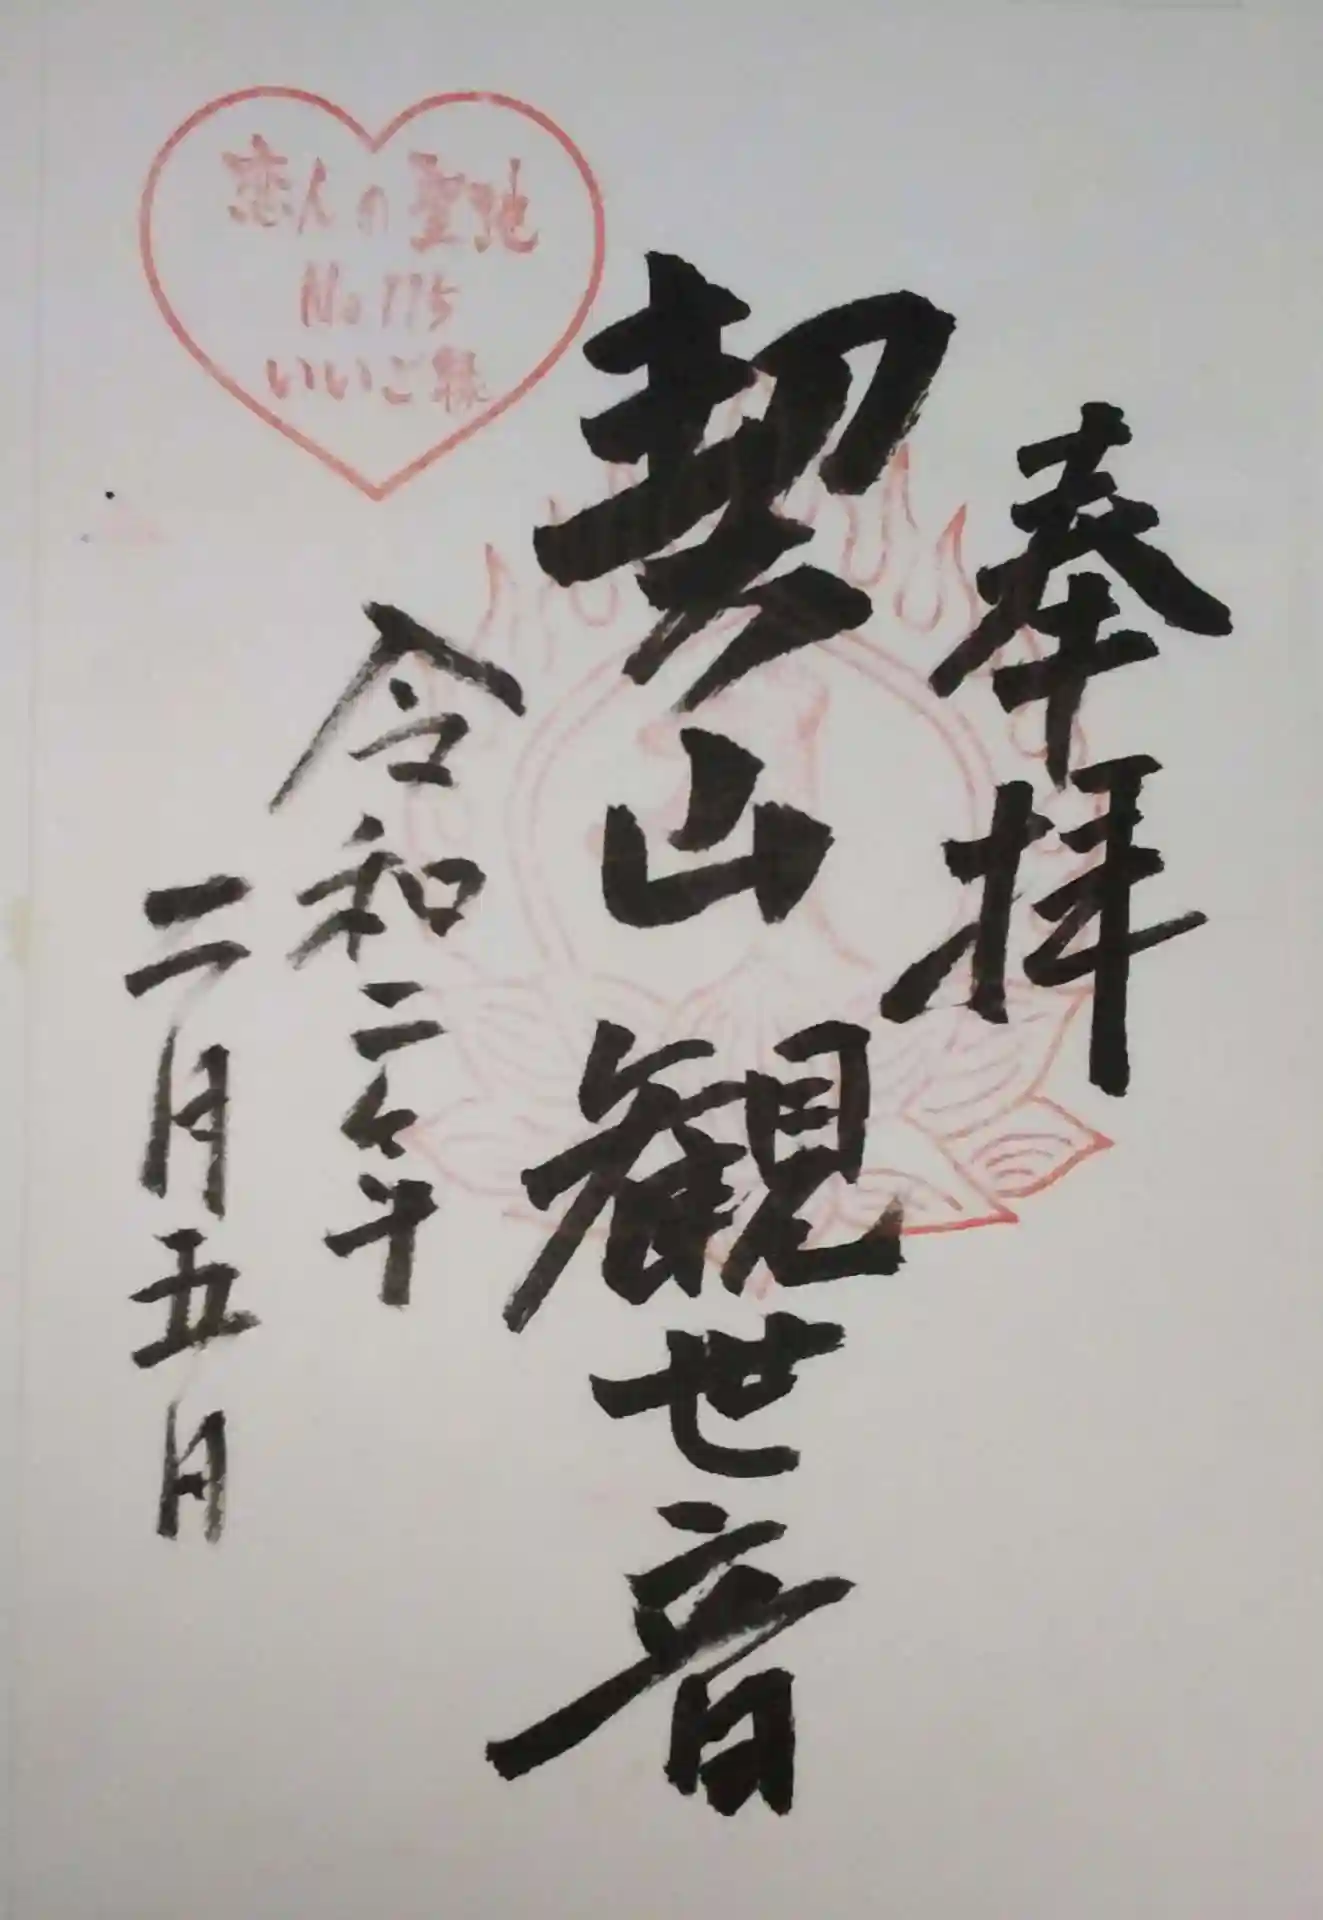 奉拝
契山観世音
令和二年
二月五日
恋人の聖地
No.115
いいご縁